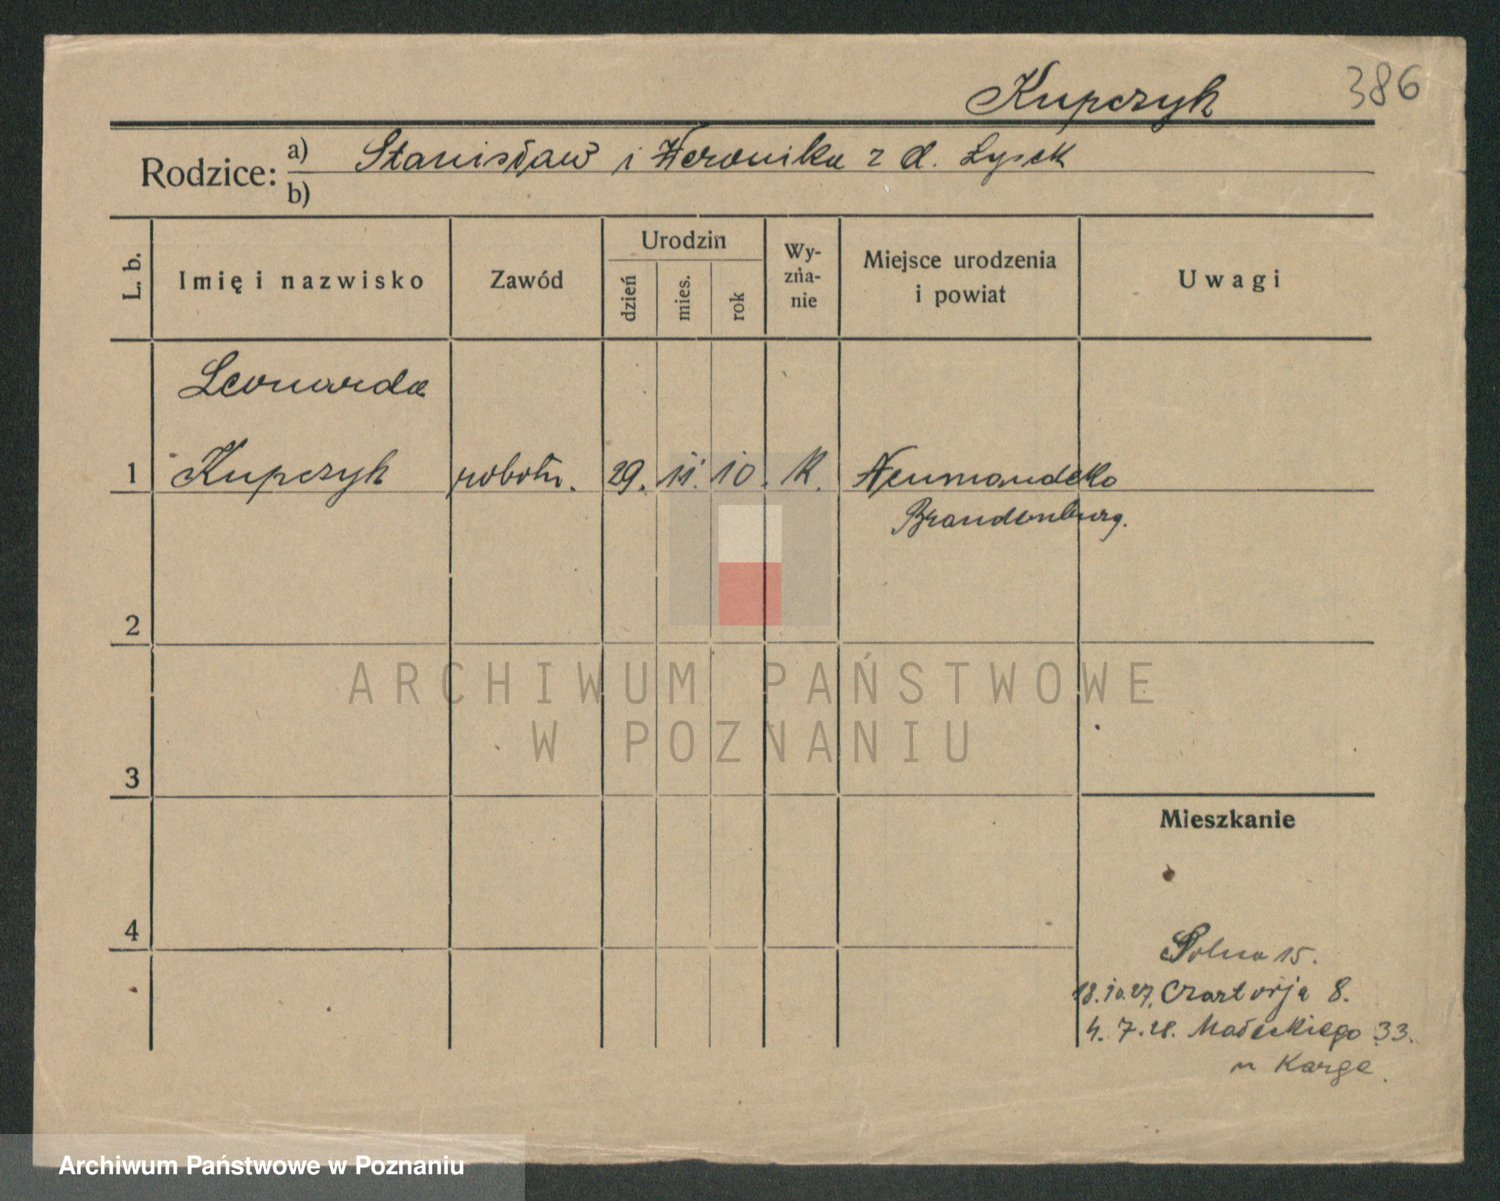 Kupczyk 386
Rodzice: a) Stanisław i Weronika z d. Łysek
b)
L. b. Imię i nazwisko Zawód Urodzin dzień mies. rok Wyznanie Miejsce urodzenia i powiat Uwagi
Leonarda
1 Kupczyk robotn. 29. 11. 10. K.
Brandenburg.
2
ARCHIWUM PAŃSTWOWE
W POZNANIU
3
Mieszkanie
4
Polna 15.
18.10.27. Czartorja 8.
4.7.28. Małeckiego 33.
u Karge.
Archiwum Państwowe w Poznaniu